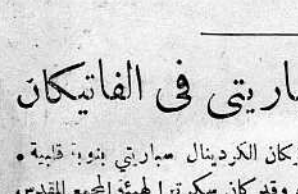 باريتى فى الفاتيكان
كان الكردينال سباريتي بنوبة قلبية .
وقد كان سكرتيرا لهيئة المجمع المقدس